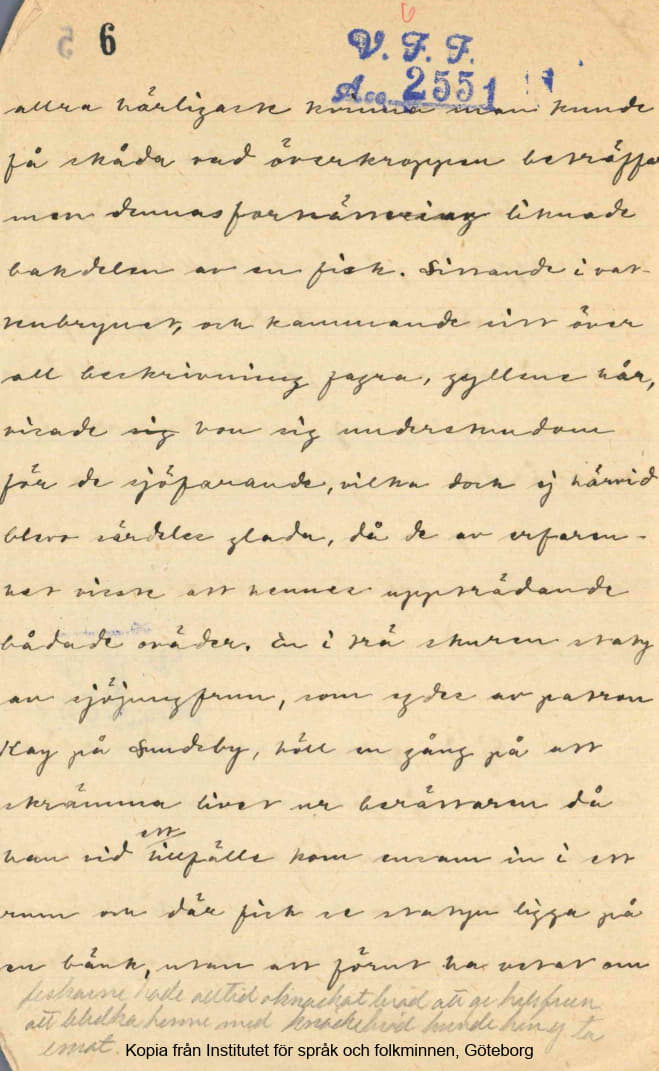 6
5 6
V. F. F.
Acc. 2551
allra härligaste kvinna man kunde
få skåda vad överkroppen beträffa
men dennas fortsättning liknade
bakdelen av en fisk. Sittande i vat-
tenbrynet, och kammande sitt över
all beskrivning fagra, gyllene hår,
visade sig hon sig understundom
för de sjöfarande, vilka dock ej härvid
blevo särdeles glada, då de av erfaren-
het visste att hennes uppträdande
bådade oväder. En i trä skuren staty
av sjöjungfrun, som egdes av patron
Kay på Sundsby, höll en gång på att
skrämma livet ur berättaren då
han vid ett tillfälle kom ensam in i ett
rum och där fick se statyn ligga på
en bänk, utan att förut ha vetat om
fiskarne hade alltid oknäckat bröd att ge hafsfruen
att blidka henne med knäckebröd kunde hon ej ta
emot.
Kopia från Institutet för språk och folkminnen, Göteborg